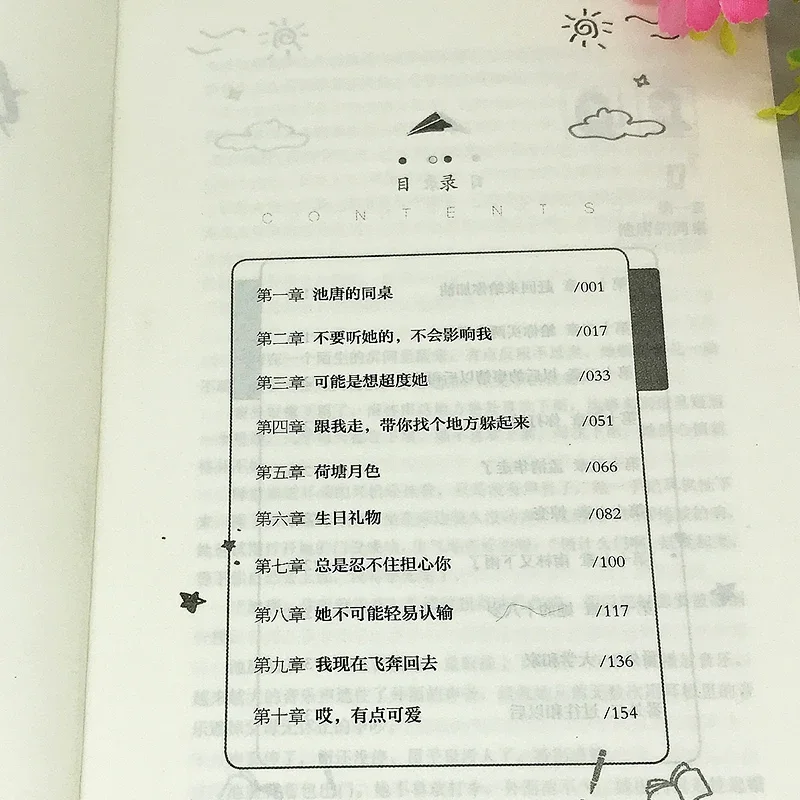 目录
CONTENTS
第一章 池唐的同桌 /001
第二章 不要听她的，不会影响我 /017
第三章 可能是想超度她 /033
第四章 跟我走，带你找个地方躲起来 /051
第五章 荷塘月色 /066
第六章 生日礼物 /082
第七章 总是忍不住担心你 /100
第八章 她不可能轻易认输 /117
第九章 我现在飞奔回去 /136
第十章 哎，有点可爱 /154